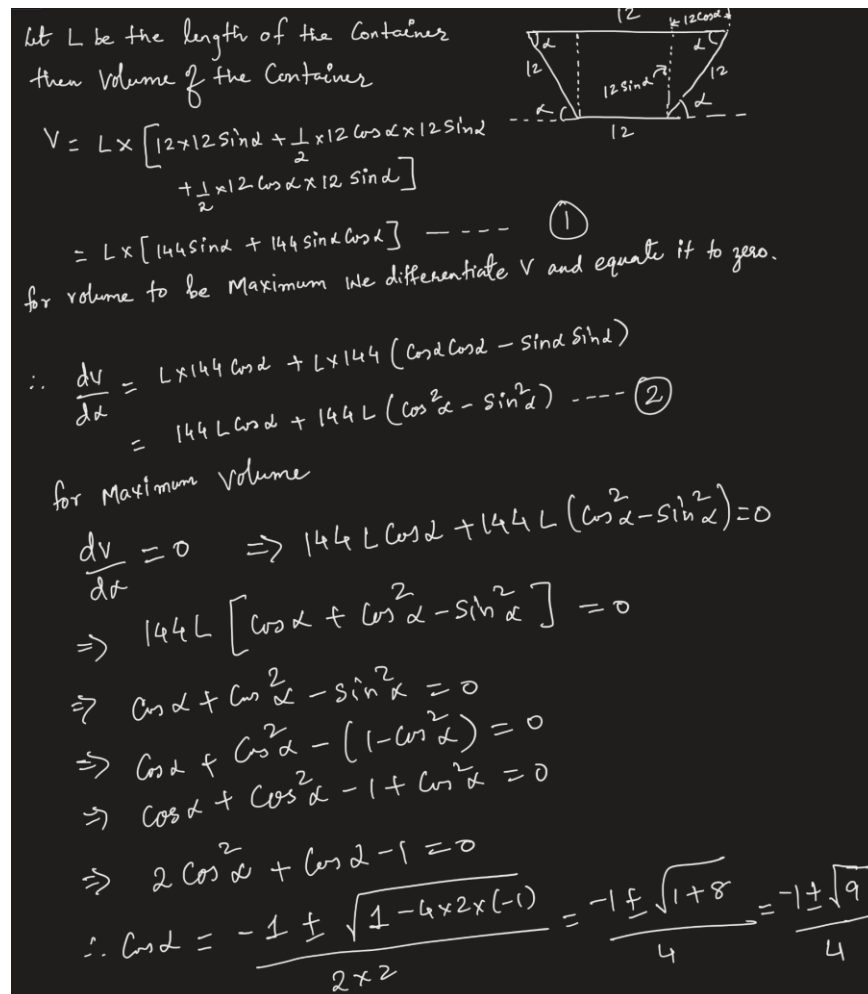 Let L be the length of the Container
then Volume of the Container
12
12 Cosα
α
α
12
12 Sinα
12
α
α
12
V = L × [12×12 Sinα + 1/2 ×12 Cosα×12 Sinα
+ 1/2 ×12 Cosα×12 Sinα]
= L × [144 Sinα + 144 Sinα Cosα] ----- ①
for volume to be Maximum we differentiate V and equate it to zero.
∴ dv/dα = L×144 Cosα + L×144 (Cosα Cosα − Sinα Sinα)
= 144 L Cosα + 144 L (Cos²α − Sin²α) ---- ②
for Maximum Volume
dv/dα = 0 ⇒ 144 L Cosα + 144 L (Cos²α − Sin²α) = 0
⇒ 144 L [Cosα + Cos²α − Sin²α] = 0
⇒ Cosα + Cos²α − Sin²α = 0
⇒ Cosα + Cos²α − (1 − Cos²α) = 0
⇒ Cosα + Cos²α − 1 + Cos²α = 0
⇒ 2 Cos²α + Cosα − 1 = 0
∴ Cosα = (−1 ± √(1 − 4×2×(−1)))/(2×2) = (−1 ± √(1+8))/4 = (−1 ± √9)/4